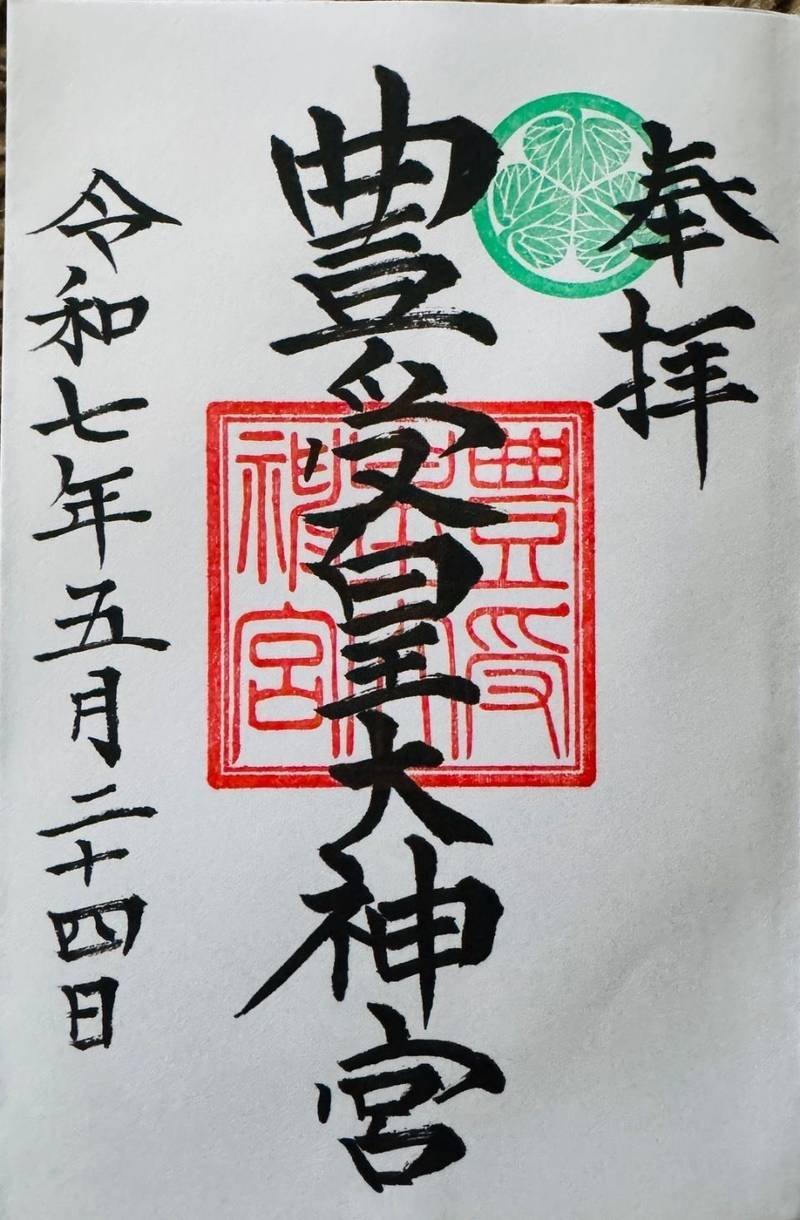 奉拝
豊受皇大神宮
豊受皇大神宮
令和七年五月二十四日